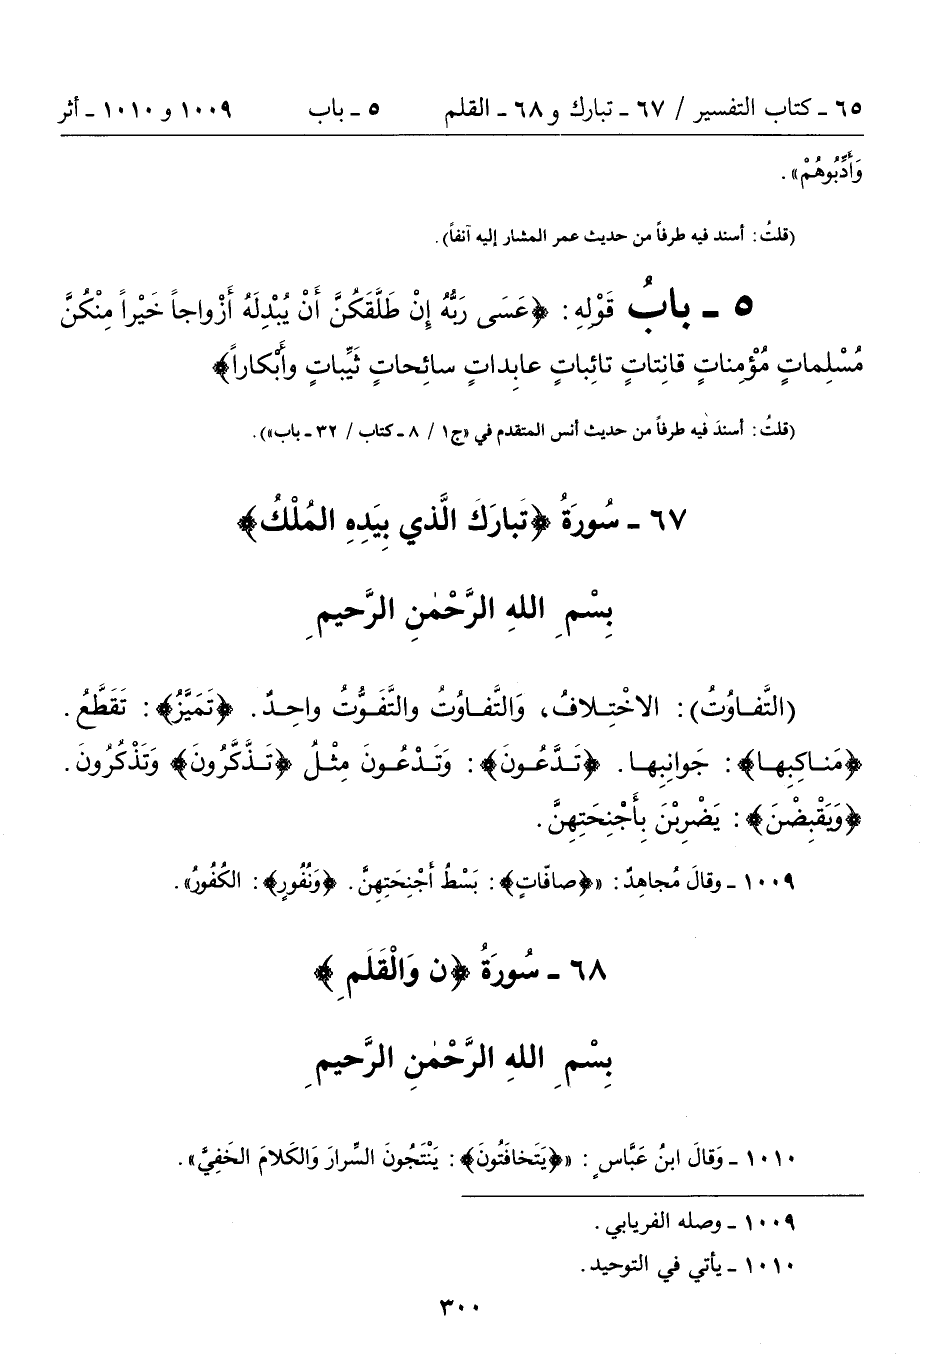 ٦٥ ـ كتاب التفسير / ٦٧ ـ تبارك و ٦٨ ـ القلم ٥ ـ باب ١٠٠٩ و ١٠١٠ ـ أثر
وَأَدِّبُوهُمْ».
(قلتُ: أسند فيه طرفاً من حديث عمر المشار إليه آنفاً).
٥ ـ بابُ قَوْلِهِ: ﴿عَسَى رَبُّهُ إِنْ طَلَّقَكُنَّ أَنْ يُبْدِلَهُ أَزْواجاً خَيْراً مِنْكُنَّ
مُسْلِماتٍ مُؤْمِناتٍ قانِتاتٍ تائِباتٍ عابِداتٍ سائِحاتٍ ثَيِّباتٍ وأَبْكاراً﴾
(قلتُ: أسندَ فيه طرفاً من حديث أنس المتقدم في «ج١ / ٨ ـ كتاب / ٣٢ ـ باب»).
٦٧ ـ سُورَةُ ﴿تَبارَكَ الَّذي بِيَدِهِ المُلْكُ﴾
بِسْمِ اللهِ الرَّحْمٰنِ الرَّحيمِ
(التَّفاوُتُ): الاخْتِلافُ، وَالتَّفاوُتُ والتَّفَوُّتُ واحِدٌ. ﴿تَمَيَّزُ﴾: تَقَطَّعُ.
﴿مَناكِبِها﴾: جَوانِبِها. ﴿تَدَّعُونَ﴾: وَتَدْعُونَ مِثْلُ ﴿تَذَّكَّرُونَ﴾ وَتَذْكُرُونَ.
﴿وَيَقْبِضْنَ﴾: يَضْرِبْنَ بِأَجْنِحَتِهِنَّ.
١٠٠٩ ـ وقالَ مُجاهِدٌ: «﴿صافّاتٍ﴾: بَسْطُ أَجْنِحَتِهِنَّ. ﴿وَنُفُورٍ﴾: الكُفُورُ».
٦٨ ـ سُورَةُ ﴿ن وَالْقَلَمِ﴾
بِسْمِ اللهِ الرَّحْمٰنِ الرَّحيمِ
١٠١٠ ـ وَقالَ ابنُ عَبَّاسٍ: «﴿يَتَخافَتُونَ﴾: يَنْتَجُونَ السِّرارَ وَالكَلامَ الخَفِيَّ».
١٠٠٩ ـ وصله الفريابي.
١٠١٠ ـ يأتي في التوحيد.
٣٠٠